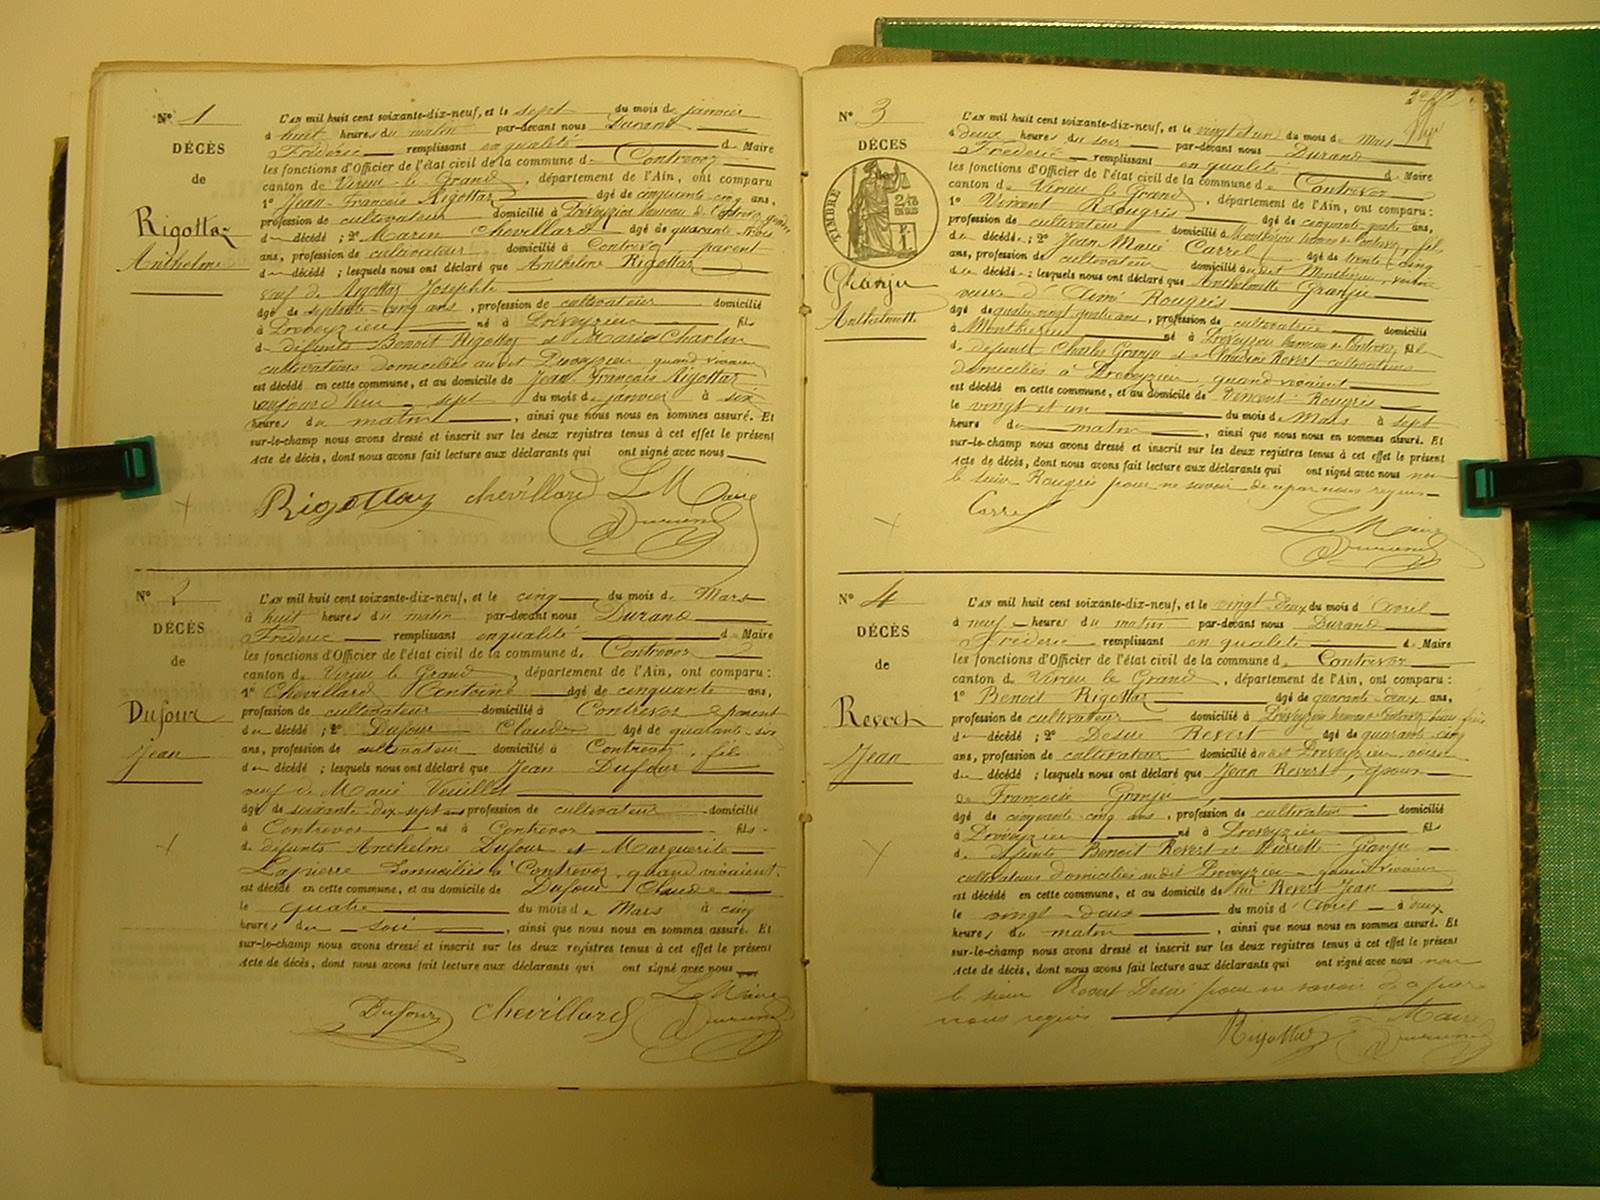 N° 1
DÉCÈS
de
Rigottaz
Anthelme
L'AN mil huit cent soixante-dix-neuf, et le sept du mois de janvier
à huit heures du matin par-devant nous Durand
Frédéric remplissant en qualité de Maire
les fonctions d'Officier de l'état civil de la commune de Contrevoz
canton de Virieu le Grand, département de l'Ain, ont comparu
1° Jean-François Rigottaz âgé de cinquante-cinq ans,
profession de cultivateur domicilié à Préveyzieu hameau de Contrevoz,
du décédé ; 2° Marin Chevillard âgé de quarante-trois
ans, profession de cultivateur domicilié à Contrevoz, parent
du décédé ; lesquels nous ont déclaré que Anthelme Rigottaz
veuf de Rigottaz Josephte
âgé de septante-cinq ans, profession de cultivateur domicilié
à Préveyzieu né à Préveyzieu fils
de défunts Benoit Rigottaz et Marie Charlin
cultivateurs domiciliés au dit Préveyzieu quand vivaient
est décédé en cette commune, et au domicile de Jean-François Rigottaz
aujourd'hui sept du mois de janvier à six
heures du matin, ainsi que nous nous en sommes assuré. Et
sur-le-champ nous avons dressé et inscrit sur les deux registres tenus à cet effet le présent
Acte de décès, dont nous avons fait lecture aux déclarants qui ont signé avec nous
Rigottaz Chevillard Le Maire
Durand
N° 2
DÉCÈS
de
Dufour
Jean
L'AN mil huit cent soixante-dix-neuf, et le cinq du mois de Mars
à huit heures du matin par-devant nous Durand
Frédéric remplissant en qualité de Maire
les fonctions d'Officier de l'état civil de la commune de Contrevoz
canton de Virieu le Grand, département de l'Ain, ont comparu :
1° Chevillard Antoine âgé de cinquante ans,
profession de cultivateur domicilié à Contrevoz parent
du décédé ; 2° Dufour Claude âgé de quarante-six
ans, profession de cultivateur domicilié à Contrevoz, fils
du décédé ; lesquels nous ont déclaré que Jean Dufour
veuf de Marie Veuillet
âgé de soixante-dix-sept ans profession de cultivateur domicilié
à Contrevoz né à Contrevoz fils
de défunts Anthelme Dufour et Marguerite
Lapierre domiciliés à Contrevoz, quand vivaient.
est décédé en cette commune, et au domicile de Dufour Claude
le quatre du mois de Mars à cinq
heures du soir, ainsi que nous nous en sommes assuré. Et
sur-le-champ nous avons dressé et inscrit sur les deux registres tenus à cet effet le présent
Acte de décès, dont nous avons fait lecture aux déclarants qui ont signé avec nous
Dufour Chevillard Le Maire
Durand
N° 3
DÉCÈS
TIMBRE
Granju
Anthelmette
L'AN mil huit cent soixante-dix-neuf, et le vingt et un du mois de Mars
à deux heures du soir par-devant nous Durand
Frédéric remplissant en qualité de Maire
les fonctions d'Officier de l'état civil de la commune de Contrevoz
canton de Virieu le Grand, département de l'Ain, ont comparu :
1° Vincent Rougris âgé de cinquante-quatre ans,
profession de cultivateur domicilié à Montbrieu hameau de Contrevoz, fils
de décédé ; 2° Jean Marie Carrel âgé de trente-cinq
ans, profession de cultivateur domicilié au dit Montbrieu,
de la décédée ; lesquels nous ont déclaré que Anthelmette Granju
veuve d'Aimé Rougris
âgé de quatre-vingt-quatre ans, profession de cultivatrice domicilié
à Montbrieu né à Préveyzieu hameau de Contrevoz, fille
de défunts Charles Granju et Claudine Revert cultivateurs
domiciliés à Préveyzieu quand vivaient
est décédé en cette commune, et au domicile de Vincent Rougris
le vingt et un du mois de Mars à sept
heures du matin, ainsi que nous nous en sommes assuré. Et
sur-le-champ nous avons dressé et inscrit sur les deux registres tenus à cet effet le présent
Acte de décès, dont nous avons fait lecture aux déclarants qui ont signé avec nous non
le sieur Rougris pour ne savoir de ce par nous requis
Carrel Le Maire
Durand
N° 4
DÉCÈS
de
Revert
Jean
L'AN mil huit cent soixante-dix-neuf, et le vingt-deux du mois d'Avril
à neuf heures du matin par-devant nous Durand
Frédéric remplissant en qualité de Maire
les fonctions d'Officier de l'état civil de la commune de Contrevoz
canton de Virieu le Grand, département de l'Ain, ont comparu :
1° Benoit Rigottaz âgé de quarante-deux ans,
profession de cultivateur domicilié à Préveyzieu hameau de Contrevoz, beau-frère
du décédé ; 2° Désiré Revert âgé de quarante-cinq
ans, profession de cultivateur domicilié au dit Préveyzieu, voisin
du décédé ; lesquels nous ont déclaré que Jean Revert, époux
de Françoise Granju,
âgé de cinquante-cinq ans, profession de cultivateur domicilié
à Préveyzieu né à Préveyzieu fils
de défunts Benoit Revert et Pierrette Granju
cultivateurs domiciliés au dit Préveyzieu quand vivaient
est décédé en cette commune, et au domicile de lui Revert Jean
le vingt-deux du mois d'Avril à deux
heures du matin, ainsi que nous nous en sommes assuré. Et
sur-le-champ nous avons dressé et inscrit sur les deux registres tenus à cet effet le présent
Acte de décès, dont nous avons fait lecture aux déclarants qui ont signé avec nous non
le sieur Revert Désiré pour ne savoir de ce par
nous requis
Rigottaz Le Maire
Durand